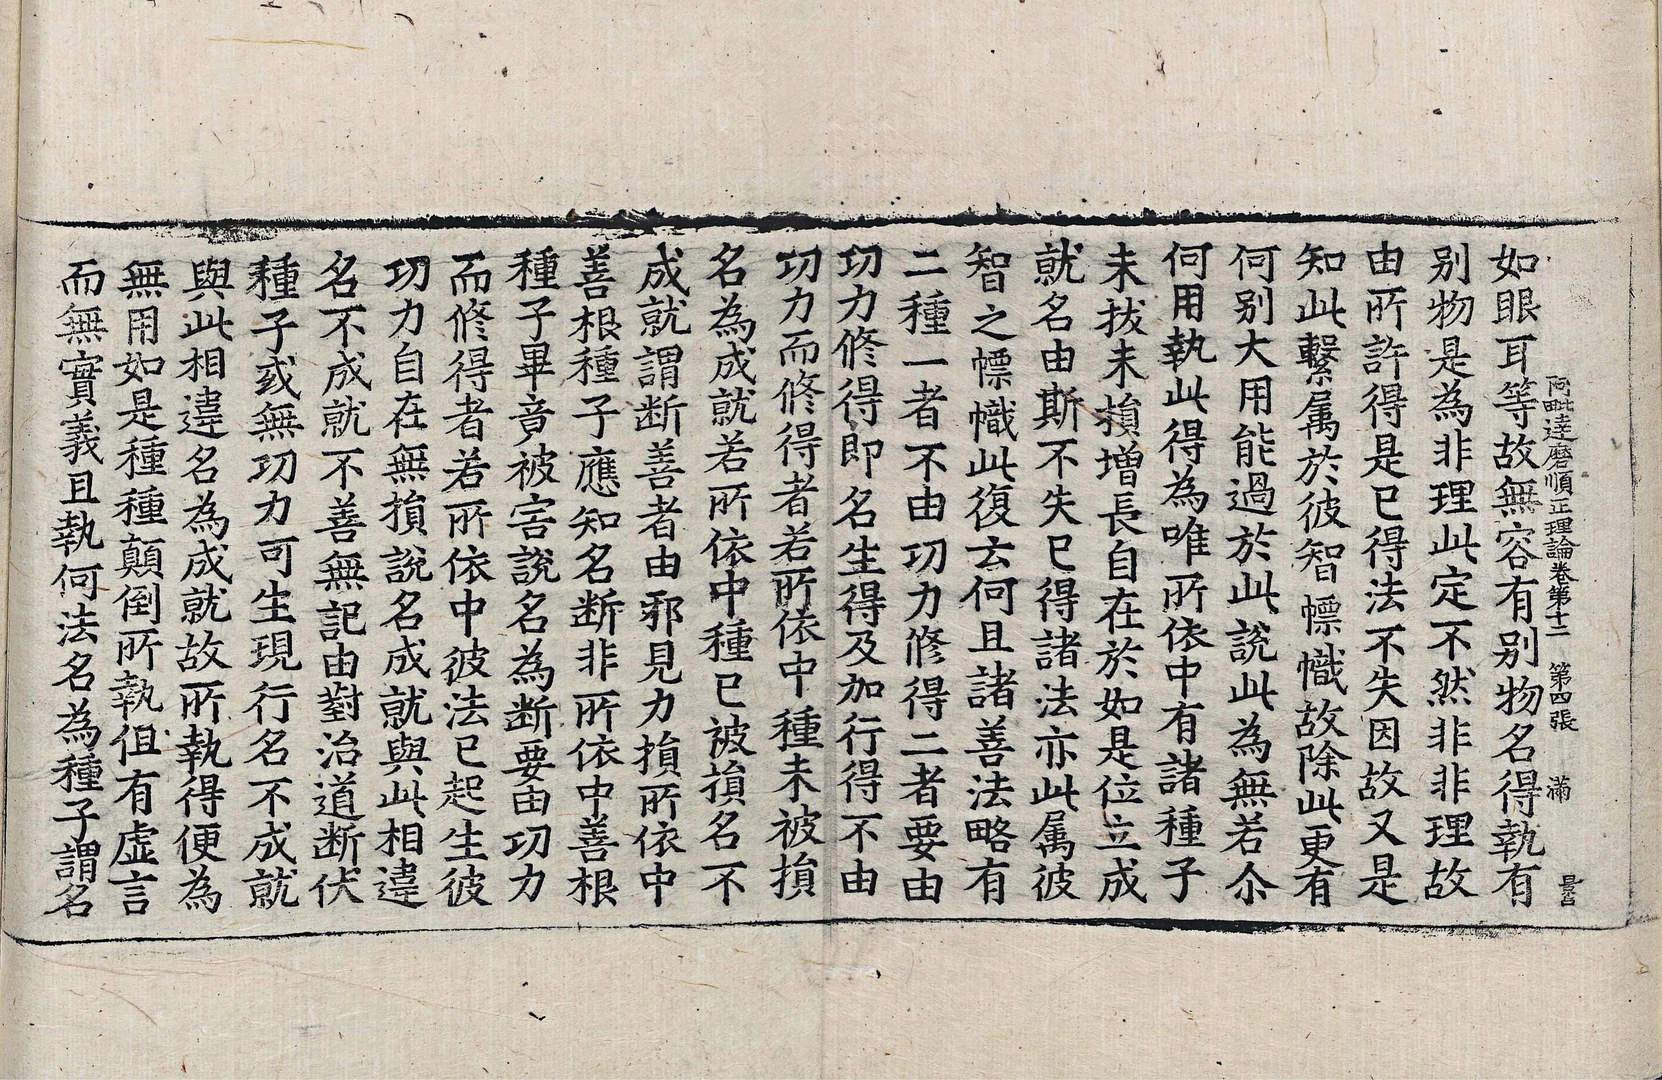 阿毗達磨順正理論卷第十二 第四張 滿
如眼耳等故無容有别物名得執有
别物是為非理此定不然非非理故
由所許得是已得法不失因故又是
知此繫属於彼智幖幟故除此更有
何别大用能過於此說此為無若尒
何用執此得為唯所依中有諸種子
未拔未損增長自在於如是位立成
就名由斯不失已得諸法亦此属彼
智之幖幟此復云何且諸善法略有
二種一者不由功力修得二者要由
功力修得即名生得及加行得不由
功力而修得者若所依中種未被損
名為成就若所依中種已被損名不
成就謂断善者由邪見力損所依中
善根種子應知名断非所依中善根
種子畢竟被害說名為断要由功力
而修得者若所依中彼法已起生彼
功力自在無損說名成就與此相違
名不成就不善無記由對治道断伏
種子或無功力可生現行名不成就
與此相違名為成就故所執得便為
無用如是種種顛倒所執但有虛言
而無實義且執何法名為種子謂名